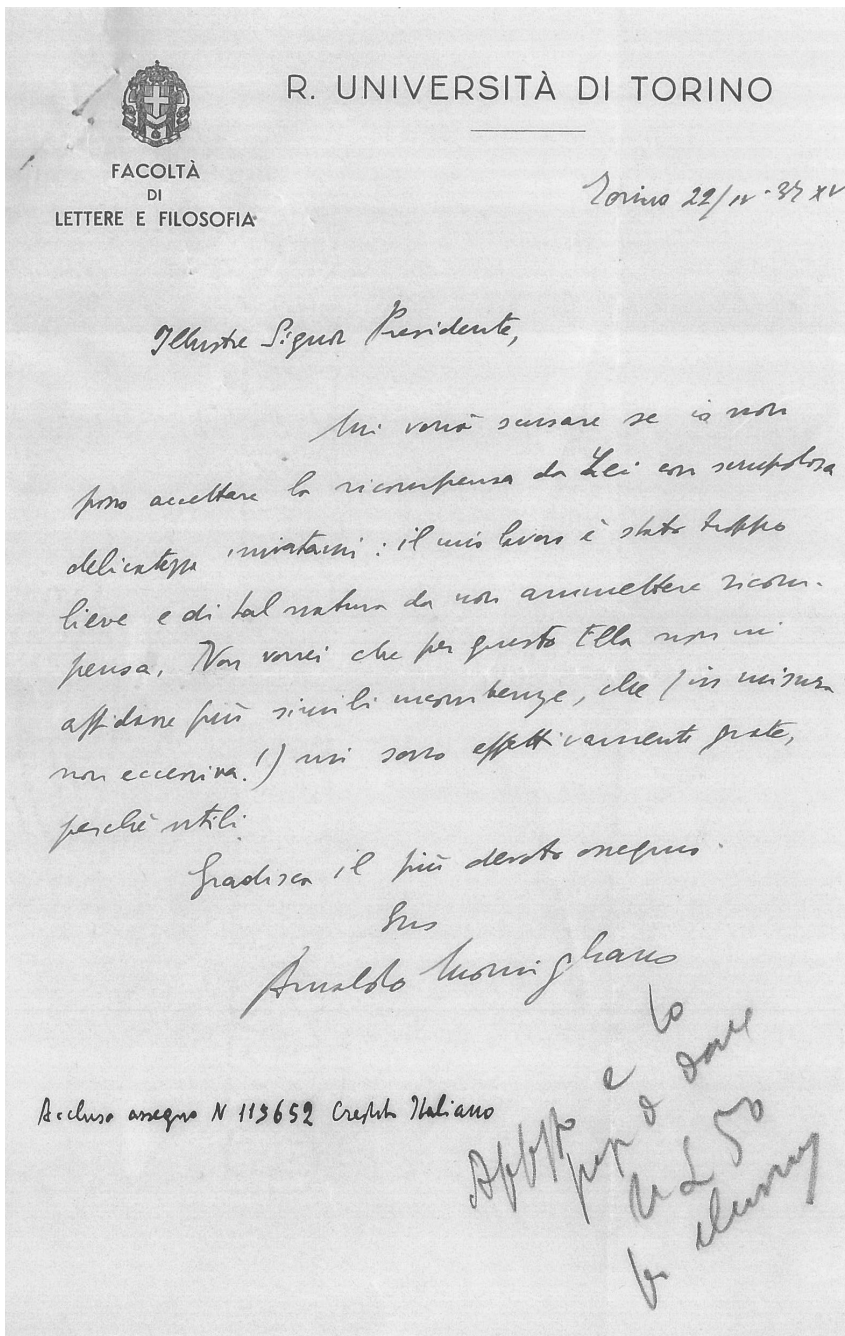 R. UNIVERSITÀ DI TORINO
FACOLTÀ
DI
LETTERE E FILOSOFIA
Torino 22/IV-37 XV
Illustre Signor Presidente,
Mi vorrà scusare se io non
posso accettare la ricompensa da Lei con scrupolosa
delicatezza inviatami: il mio lavoro è stato troppo
lieve e di tal natura da non ammettere ricom-
pensa. Non vorrei che per questo Ella non mi
affidasse più simili incombenze, che (in misura
non eccessiva!) mi sono effettivamente grate,
perchè utili.
Gradisca il più devoto ossequio.
Suo
Arnaldo Momigliano
Accluso assegno N 113652 Credito Italiano
e lo
dare
L 50